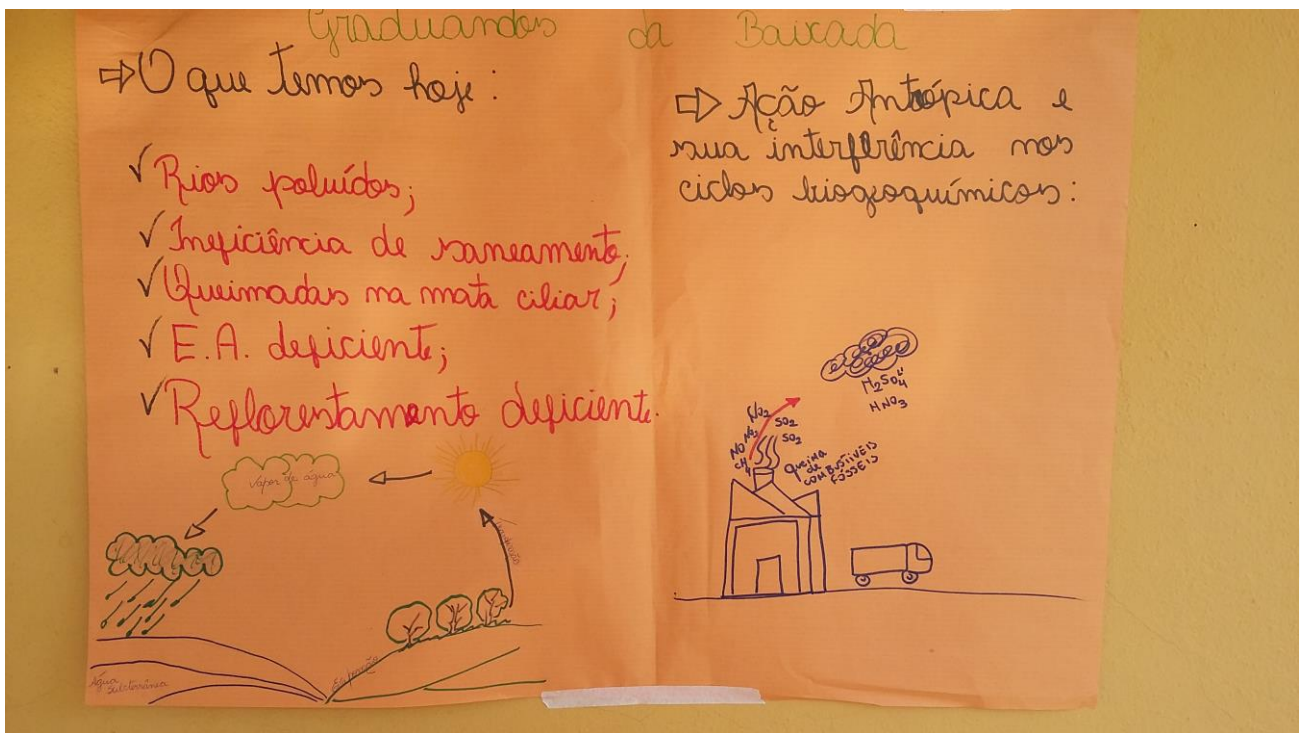 Graduandos da Baixada
⇨ O que temos hoje:
✓ Rios poluídos;
✓ Ineficiência de saneamento;
✓ Queimadas na mata ciliar;
✓ E.A. deficiente;
✓ Reflorestamento deficiente.
Vapor de água
Transpiração
Evaporação
Água
Subterrânea
⇨ Ação Antrópica e
sua interferência nos
ciclos biogeoquímicos:
H₂SO₄
HNO₃
NO₂
SO₂
NO₂
SO₂
NO
CH₄
Queima
de
combustíveis
fósseis